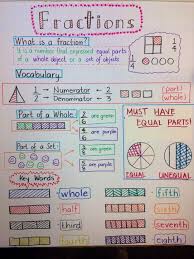 Fractions
What is a fraction?
It is a number that expresses equal parts
of a whole object or a set of objects
1/4
1/4
Vocabulary
1/2
Numerator
Denominator
(part)
(whole)
Part of a Whole:
are green
are purple
Part of a Set:
are green
are purple
MUST HAVE
EQUAL PARTS!
EQUAL
UNEQUAL
Key Words
whole
half
third
fourth
fifth
sixth
seventh
eighth